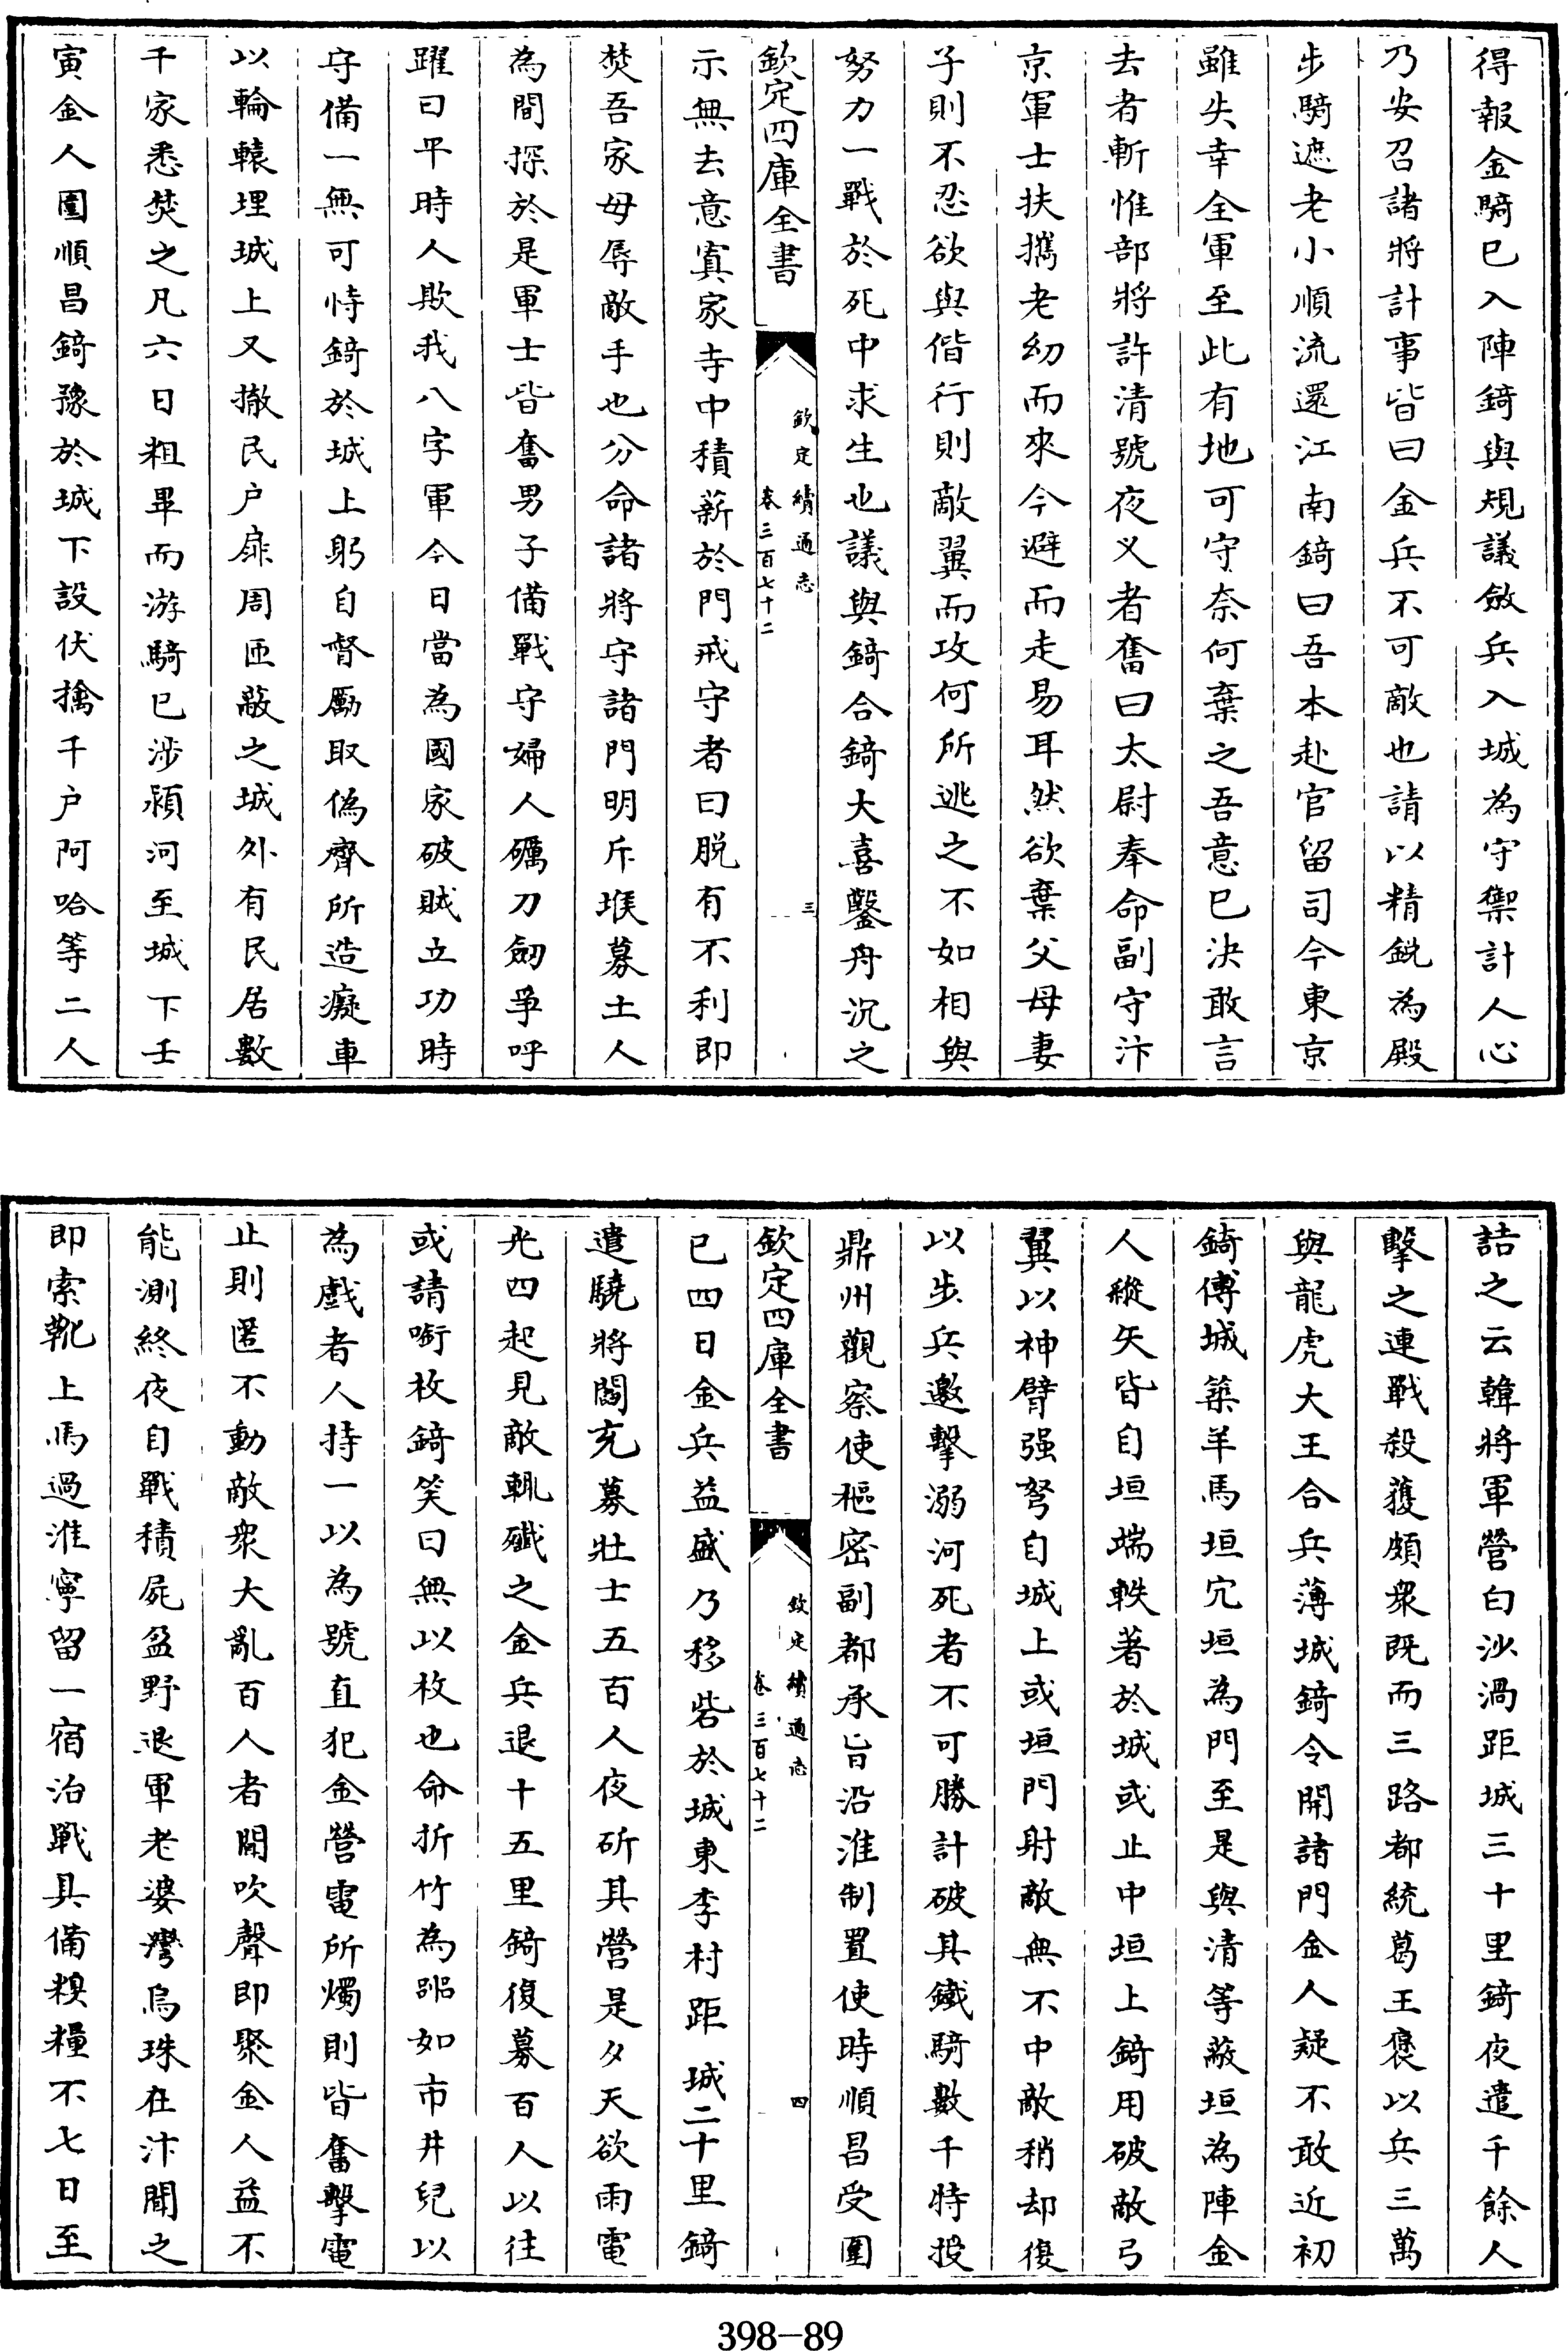 得報金騎已入陣錡與規議斂兵入城為守禦計人心
乃安召諸將計事皆曰金兵不可敵也請以精銳為殿
步騎遮老小順流還江南錡曰吾本赴官留司今東京
雖失幸全軍至此有地可守奈何棄之吾意已決敢言
去者斬惟部將許清號夜义者奮曰太尉奉命副守汴
京軍士扶攜老幼而來今避而走易耳然欲棄父母妻
子則不忍欲與偕行則敵翼而攻何所逃之不如相與
努力一戰於死中求生也議與錡合錡大喜鑿舟沉之
欽定四庫全書
欽定續通志
卷三百七十二
三
示無去意寘家寺中積薪於門戒守者曰脱有不利即
焚吾家毋辱敵手也分命諸將守諸門明斥堠募土人
為間探於是軍士皆奮男子備戰守婦人礪刀劒爭呼
躍曰平時人欺我八字軍今日當為國家破賊立功時
守備一無可恃錡於城上躬自督勵取偽齊所造癡車
以輪轅埋城上又撤民户扉周匝蔽之城外有民居數
千家悉焚之凡六日粗畢而游騎已涉潁河至城下壬
寅金人圍順昌錡豫於城下設伏擒千户阿哈等二人
詰之云韓將軍營白沙渦距城三十里錡夜遣千餘人
擊之連戰殺獲頗衆既而三路都統葛王褒以兵三萬
與龍虎大王合兵薄城錡令開諸門金人疑不敢近初
錡傅城築羊馬垣穴垣為門至是與清等蔽垣為陣金
人縱矢皆自垣端軼著於城或止中垣上錡用破敵弓
翼以神臂强弩自城上或垣門射敵無不中敵稍却復
以步兵邀擊溺河死者不可勝計破其鐵騎數千特授
鼎州觀察使樞密副都承旨沿淮制置使時順昌受圍
欽定四庫全書
欽定續通志
卷三百七十二
四
已四日金兵益盛乃移砦於城東李村距城二十里錡
遣驍將閻充募壯士五百人夜斫其營是夕天欲雨電
光四起見敵輒殲之金兵退十五里錡復募百人以往
或請啣枚錡笑曰無以枚也命折竹為㗋如市井兒以
為戲者人持一以為號直犯金營電所燭則皆奮擊電
止則匿不動敵衆大亂百人者聞吹聲即聚金人益不
能測終夜自戰積屍盈野退軍老婆灣烏珠在汴聞之
即索靴上馬過淮寧留一宿治戰具備糗糧不七日至
398-89